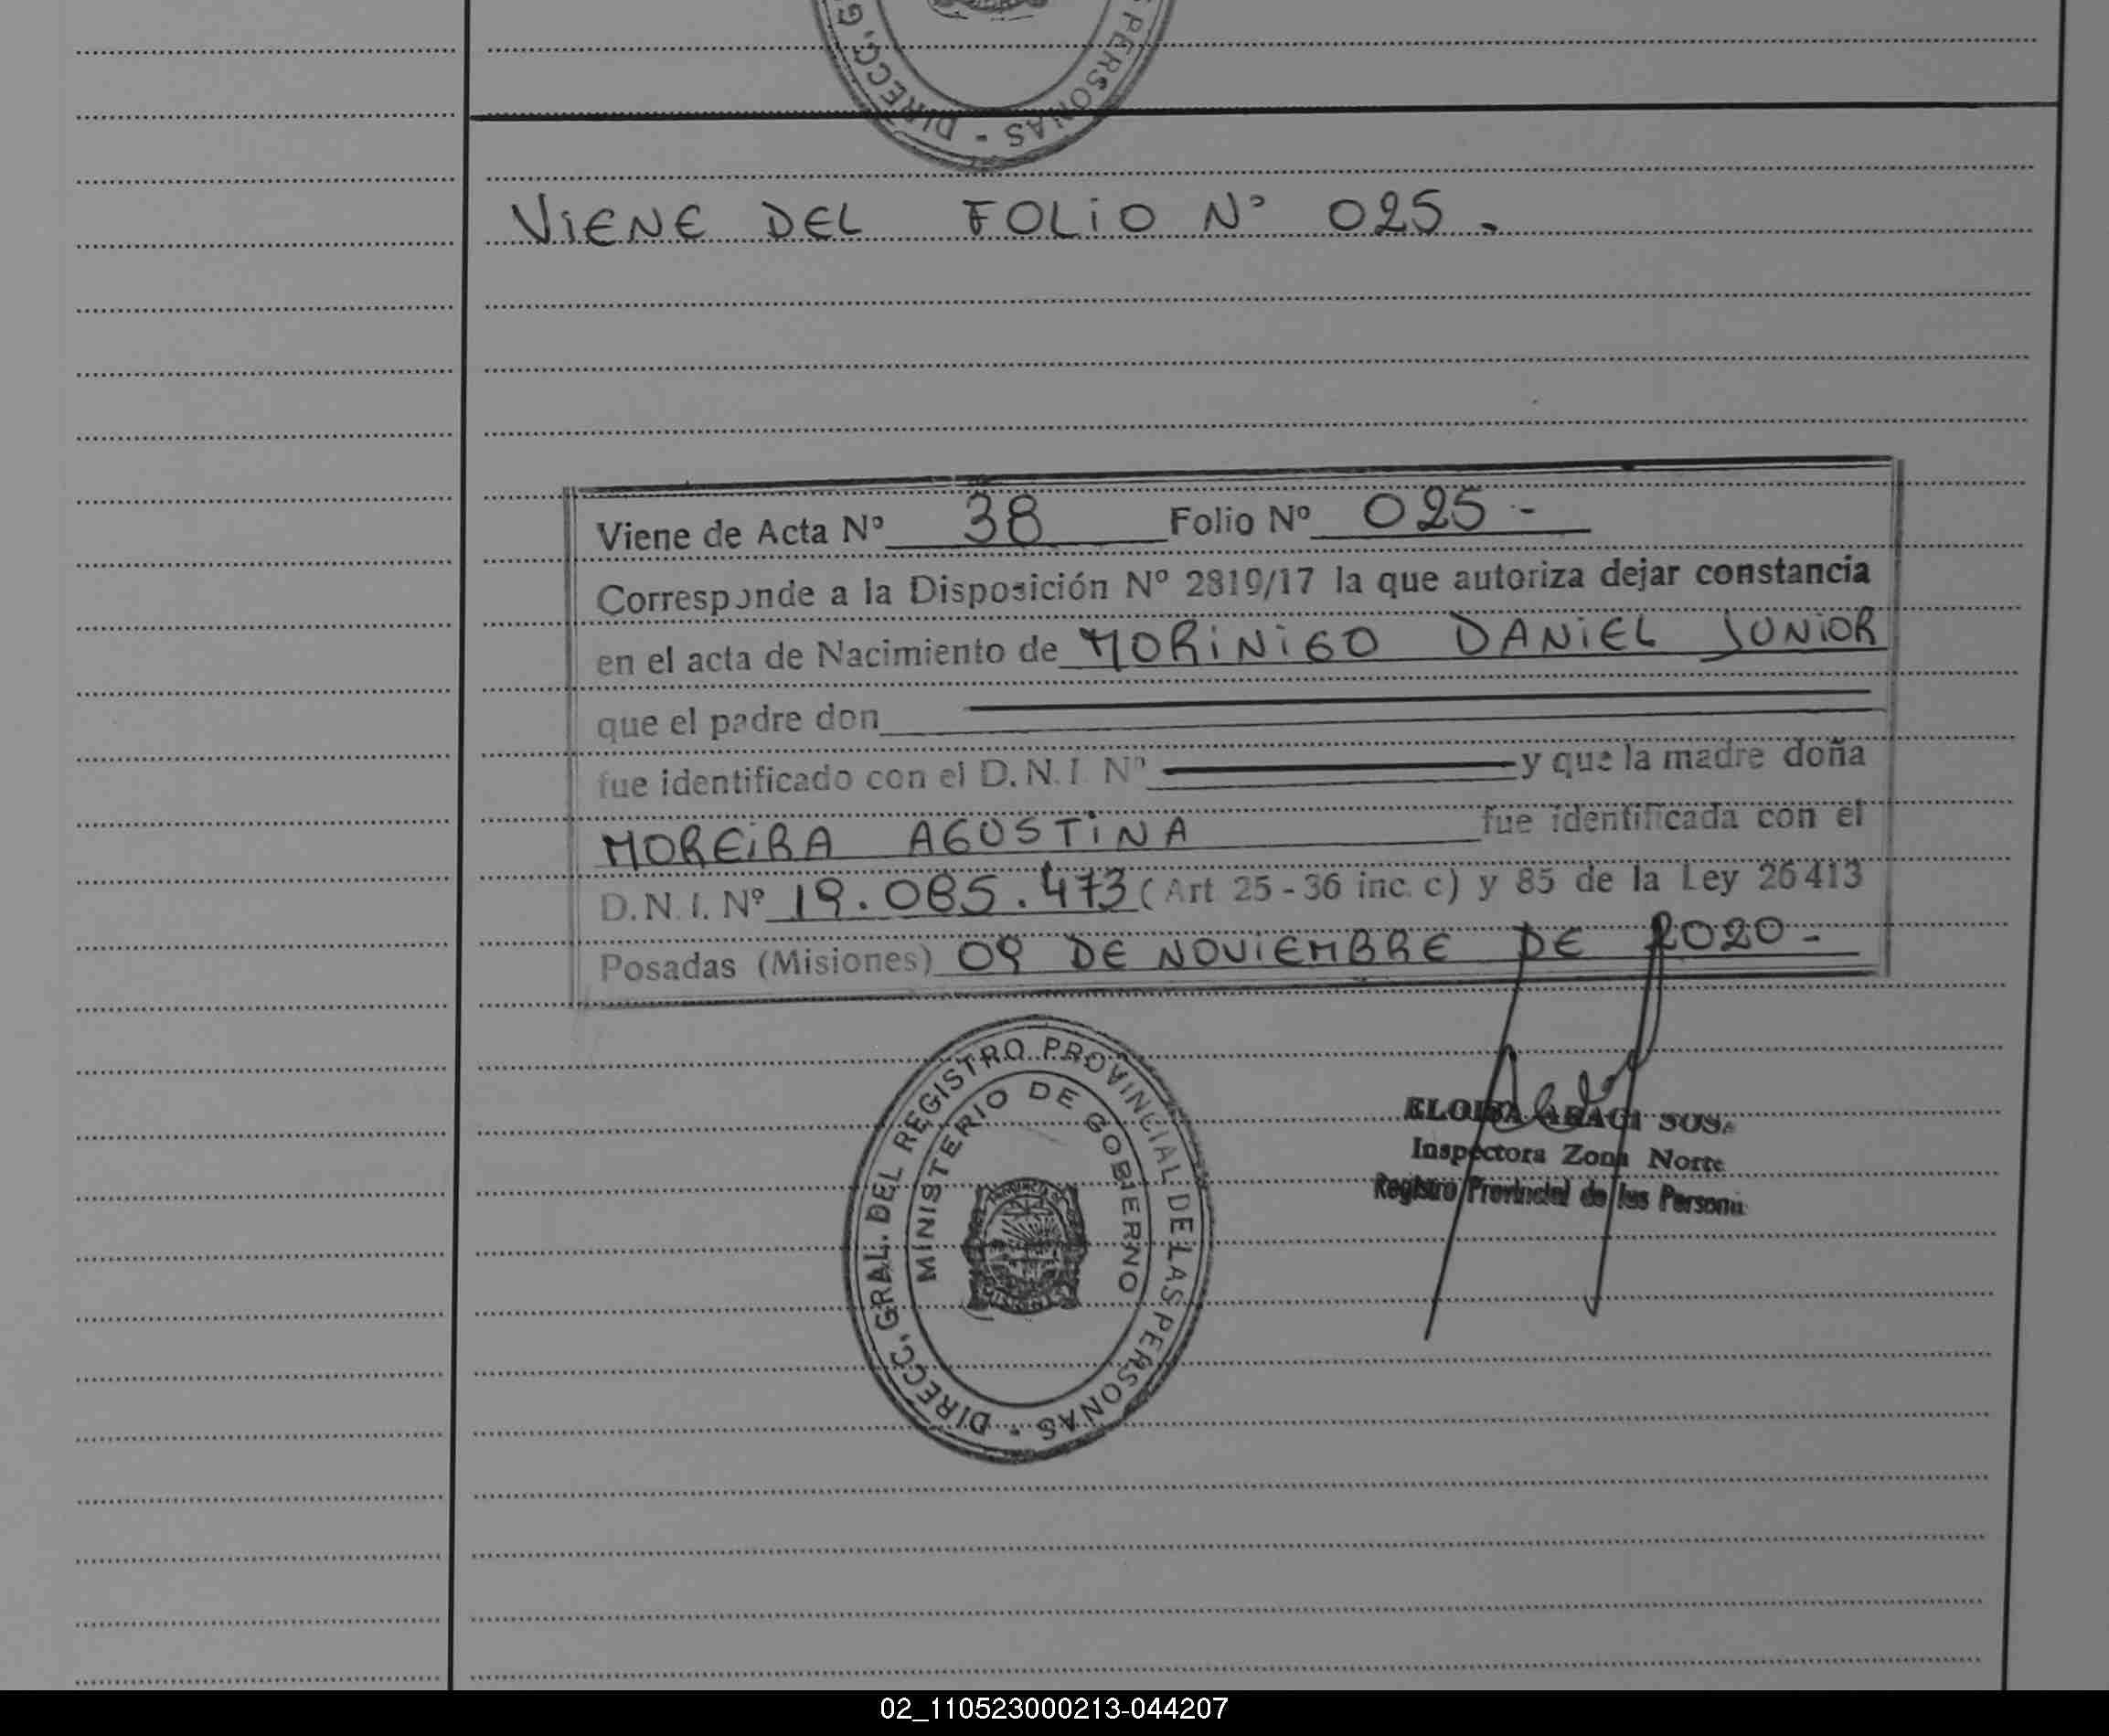 DIRECC. G
PERSONAS -
VIENE DEL FOLIO N° 025.
Viene de Acta Nº 38 Folio Nº 025-
Corresponde a la Disposición Nº 2819/17 la que autoriza dejar constancia
en el acta de Nacimiento de MORINIGO DANIEL JUNIOR
que el padre don
fue identificado con el D.N.I Nº y que la madre doña
MOREIRA AGUSTINA fue identificada con el
D.N.I. Nº 19.085.473 (Art 25-36 inc. c) y 85 de la Ley 26413
Posadas (Misiones) 09 DE NOVIEMBRE DE 2020-
DIRECC. GRAL. DEL REGISTRO PROVINCIAL DE LAS PERSONAS -
MINISTERIO DE GOBIERNO
ELOISA ARACI SOSA
Inspectora Zona Norte
Registro Provincial de las Persona
02_110523000213-044207